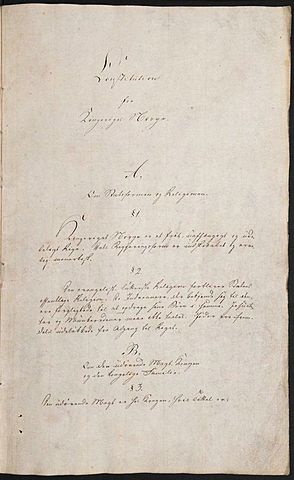 Constitution
for
Kongeriget Norge.
A.
Om Statsformen og Religionen.
§ 1.
Kongeriget Norge er et frit, uafhængigt og ude-
leligt Rige. Dets Regjeringsform er indskrænket og arve-
lig monarkisk.
§ 2.
Den evangelisk-lutherske Religion forbliver Statens
offentlige Religion. De Indvaanere, der bekjende sig til den,
ere forpligtede til at opdrage sine Børn i samme. Jesuit-
ter og Munkeordener maae ikke taales. Jøder ere frem-
deles udelukkede fra Adgang til Riget.
B.
Om den udøvende Magt, Kongen
og den kongelige Familie.
§ 3.
Den udøvende Magt er hos Kongen. Hans Titel er: